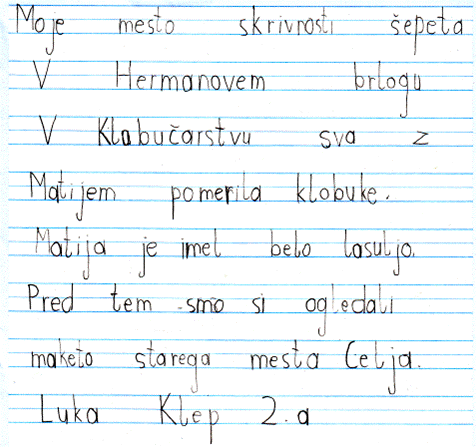 Moje mesto skrivnosti šepeta
V Hermanovem brlogu
V Klobučarstvu sva z
Matijem pomerila klobuke.
Matija je imel belo lasuljo.
Pred tem smo si ogledali
maketo starega mesta Celja.
Luka Klep 2. a